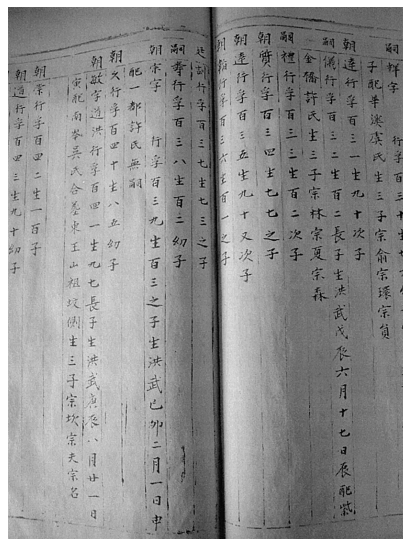 嗣輝字 行字百
子配華漾虞氏生三子宗俞宗環宗貟
朝達行字百三一生九十次子
嗣儀行字百三二生百二長子生洪武戊辰六月十七日辰配紫
金橋許氏生三子宗林宗夏宗森
嗣禮行字百三三生百二次子
朝贊行字百三四生七七之子
朝達行字百三五生九十又次子
朝 行字百三六生百一之子
廷 行字百三七生七三之子
嗣奉行字百三八生百二幼子
朝宗字 行字百三九生百三之子生洪武己卯二月一日申
配一都許氏無嗣
朝久行字百四十生八五幼子
朝敏字道洪行字百四一生九七長子生洪武庚辰八月廿一日
寅配南岑吳氏合墓東王山祖坟側生三子宗坎宗夫宗名
朝常行字百四二生一百子
朝道行字百四三生九十幼子